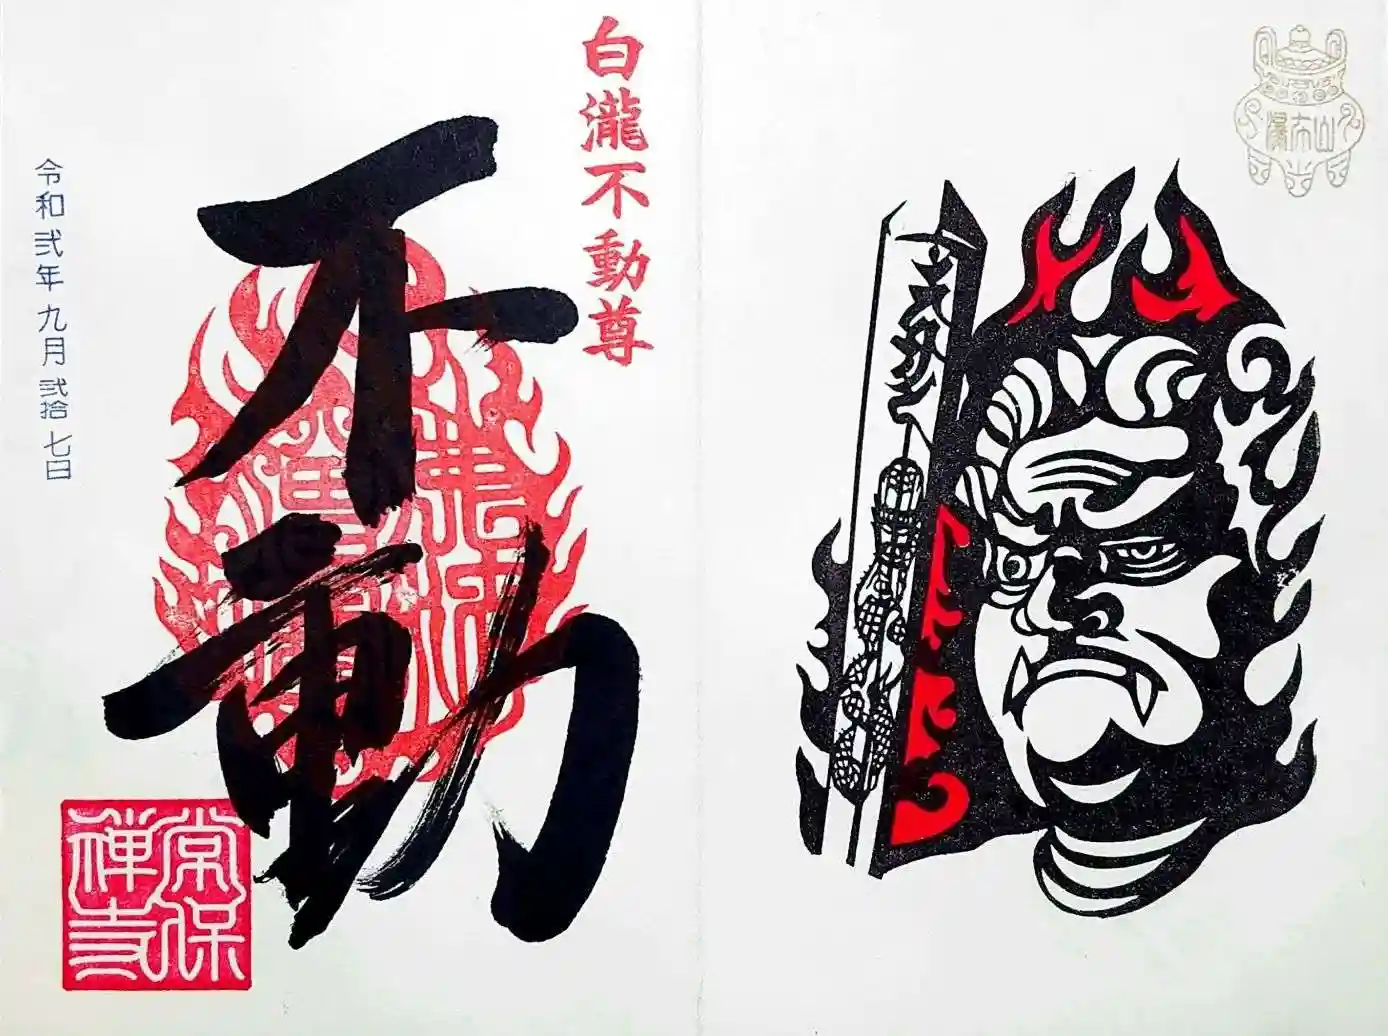 瀑布山
白瀧不動尊
不動
令和弐年九月弐拾七日
常保禅寺